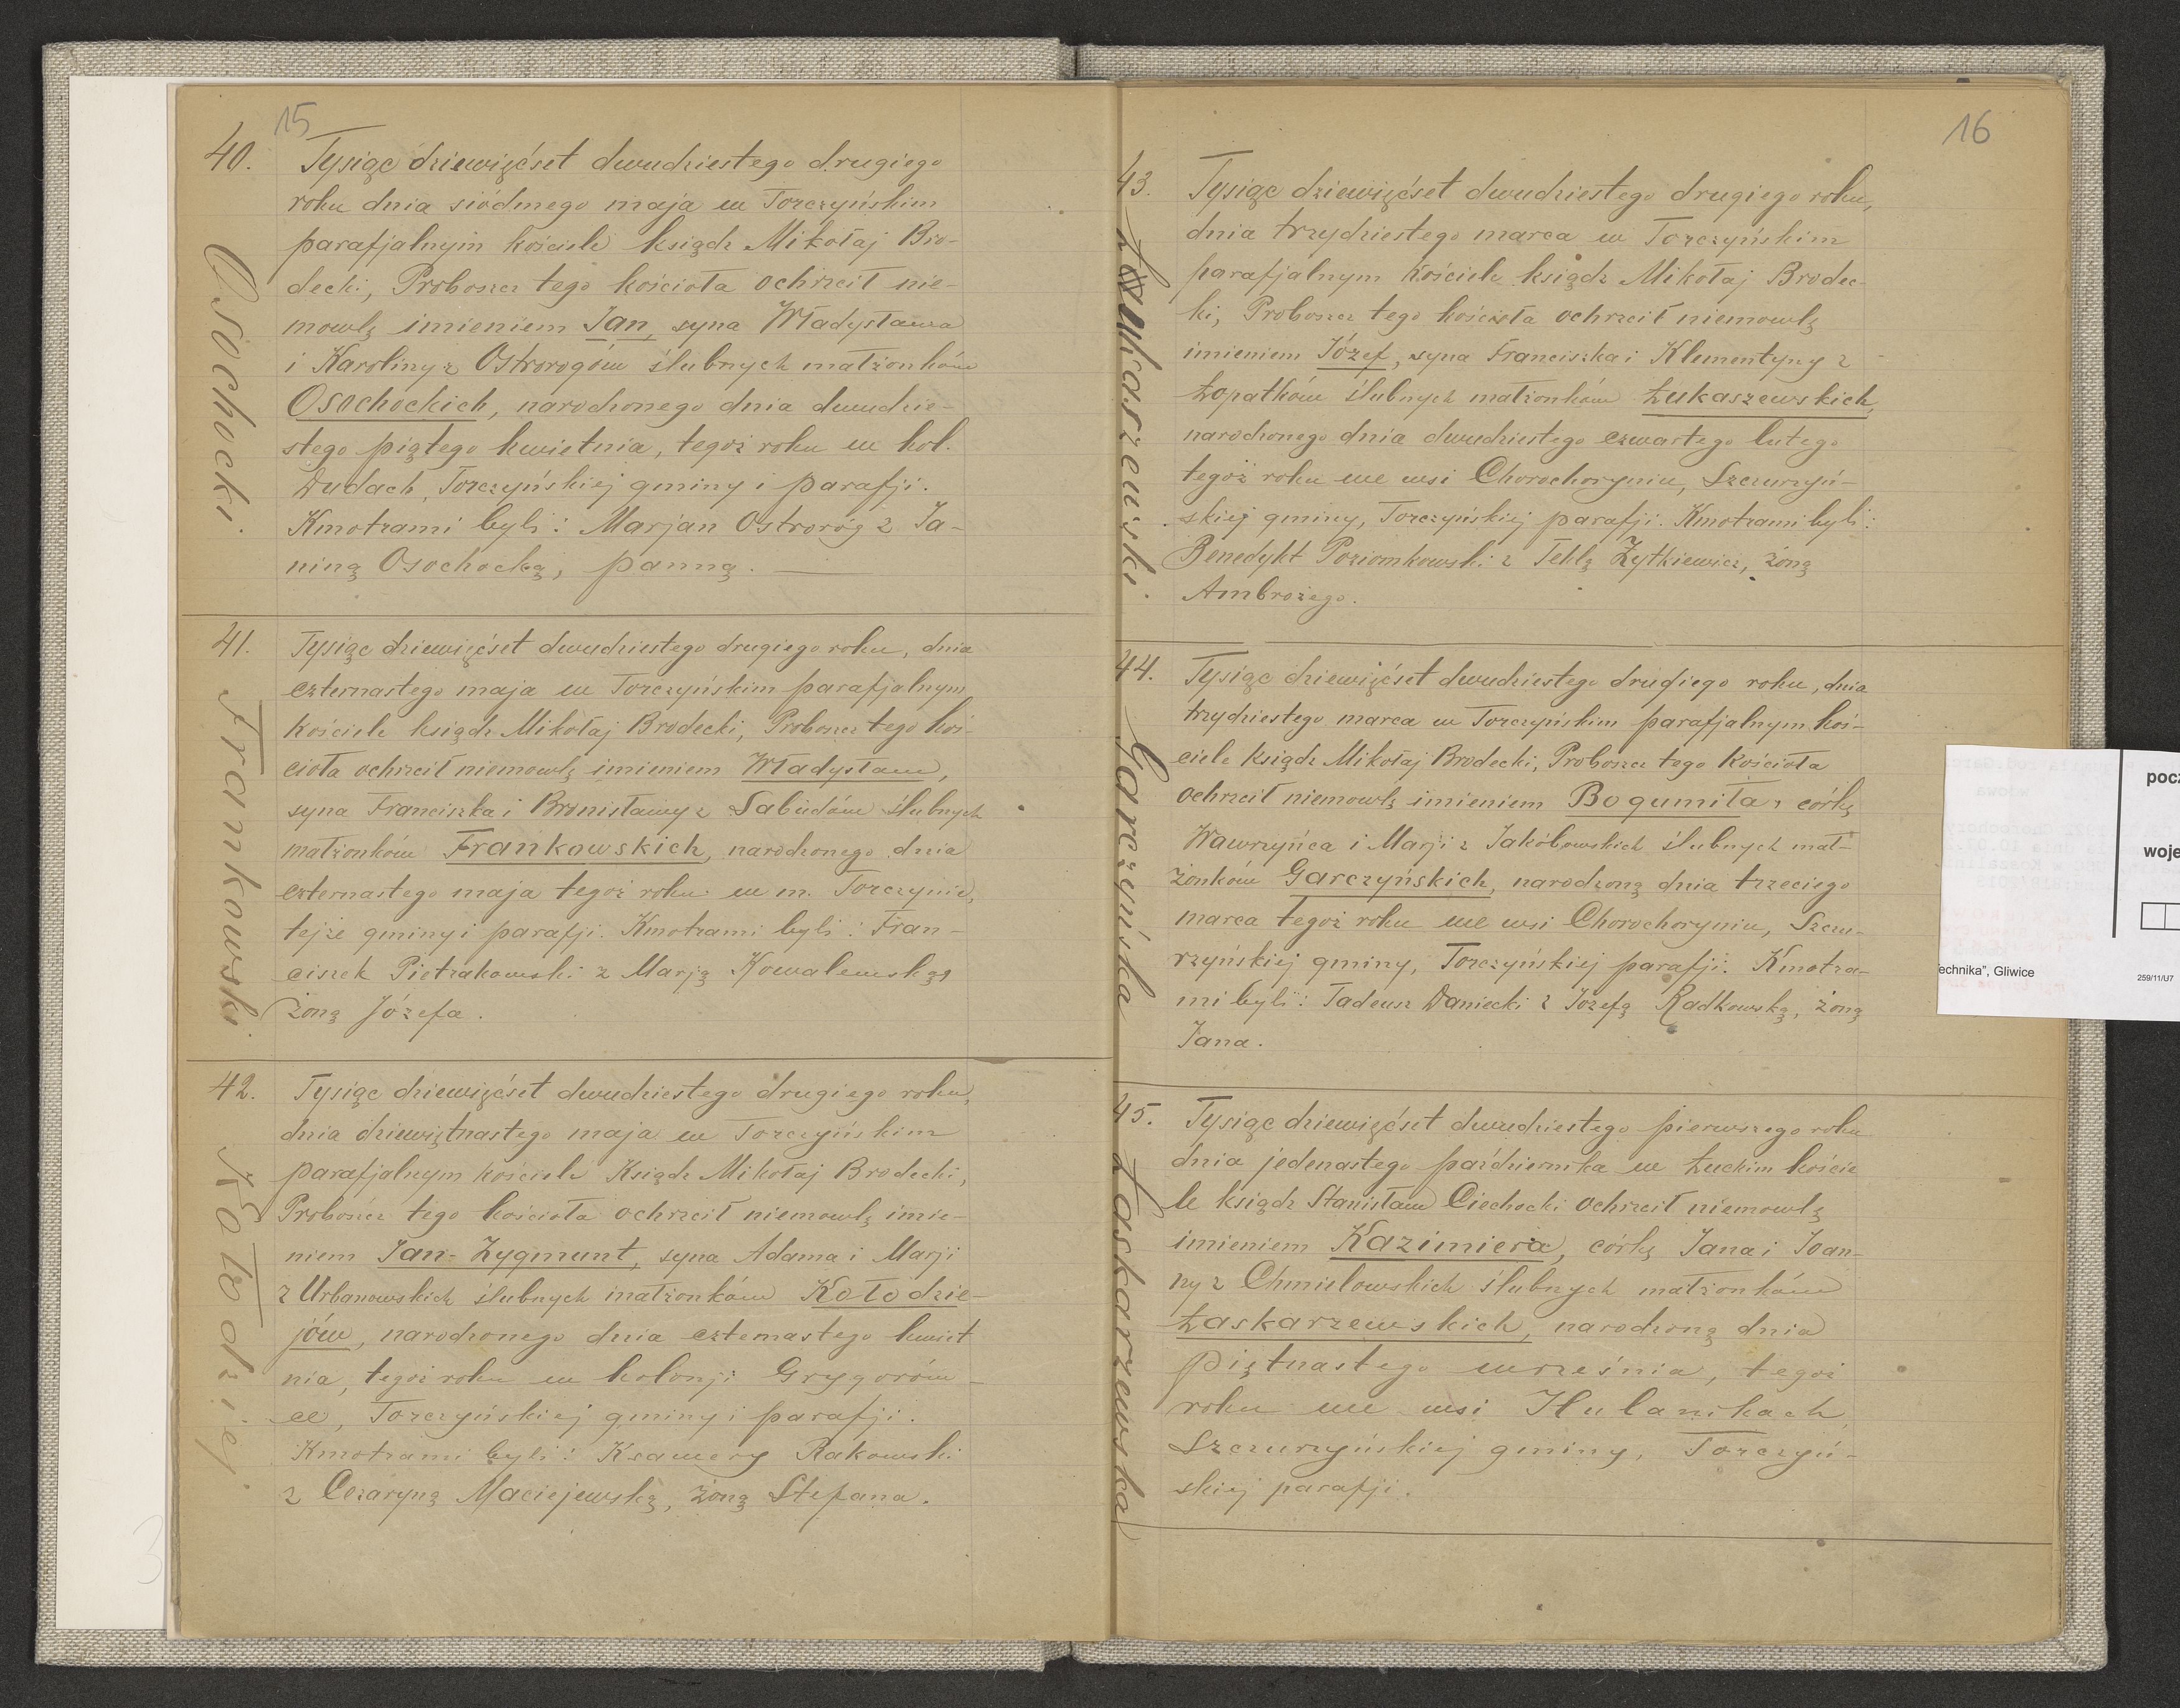 15
40.
Osochocki.
Tysiąc dziewięćset dwudziestego drugiego
roku dnia siódmego maja w Torczyńskim
parafjalnym kościele ksiądz Mikołaj Bro-
decki, Proboszcz tego kościoła ochrzcił nie-
mowlę imieniem Jan, syna Władysława
i Karoliny z Ostrorogów ślubnych małżonków
Osochockich, narodzonego dnia dwudzie-
stego piątego kwietnia, tegoż roku w kol.
Dudach, Torczyńskiej gminy i parafji.
Kmotrami byli: Marjan Ostroróg z Ja-
niną Osochocką, panną.
41.
Frankowski.
Tysiąc dziewięćset dwudziestego drugiego roku, dnia
czternastego maja w Torczyńskim parafjalnym
kościele ksiądz Mikołaj Brodecki, Proboszcz tego koś-
cioła ochrzcił niemowlę imieniem Władysław,
syna Franciszka i Bronisławy z Sabudów ślubnych
małżonków Frankowskich, narodzonego dnia
czternastego maja tegoż roku w m. Torczynie,
tejże gminy i parafji. Kmotrami byli: Fran-
ciszek Pietrzakowski z Marją Kowalewską,
żoną Józefa.
42.
Kołodziej.
Tysiąc dziewięćset dwudziestego drugiego roku,
dnia dziewiętnastego maja w Torczyńskim
parafjalnym kościele Ksiądz Mikołaj Brodecki,
Proboszcz tego kościoła ochrzcił niemowlę imie-
niem Jan-Zygmunt, syna Adama i Marji
z Urbanowskich ślubnych małżonków Kołodzie-
jów, narodzonego dnia czternastego kwiet
nia, tegoż roku w kolonji Grygorów-
ce, Torczyńskiej gminy i parafji.
Kmotrami byli: Ksawery Rakowski
z Cezaryną Maciejewską, żoną Stefana.
16
43.
Łukaszewski.
Tysiąc dziewięćset dwudziestego drugiego roku,
dnia trzydziestego marca w Torczyńskim
parafjalnym kościele ksiądz Mikołaj Brodec-
ki, Proboszcz tego kościoła ochrzcił niemowlę
imieniem Józef, syna Franciszka i Klementyny z
Łopatków ślubnych małżonków Łukaszewskich,
narodzonego dnia dwudziestego czwartego lutego
tegoż roku we wsi Chorochoryniu, Szczurzyń-
skiej gminy, Torczyńskiej parafji. Kmotrami byli:
Benedykt Poziomkowski z Teklą Żytkiewicz, żoną
Ambrożego.
44.
Garczyńska
Tysiąc dziewięćset dwudziestego drugiego roku, dnia
trzydziestego marca w Torczyńskim parafjalnym koś-
ciele ksiądz Mikołaj Brodecki, Proboszcz tego kościoła
ochrzcił niemowlę imieniem Bogumiła, córkę
Wawrzyńca i Marji z Jakóbowskich ślubnych mał-
żonków Garczyńskich, narodzoną dnia trzeciego
marca tegoż roku we wsi Chorochoryniu, Szczu-
rzyńskiej gminy, Torczyńskiej parafji. Kmotra-
mi byli: Tadeusz Daniecki z Józefą Radkowską, żoną
Jana.
45.
Łaskarzewska
Tysiąc dziewięćset dwudziestego pierwszego roku
dnia jedenastego października w Łuckim koście
le ksiądz Stanisław Ciechocki ochrzcił niemowlę
imieniem Kazimiera, córkę Jana i Joan-
ny z Chmielowskich ślubnych małżonków
Łaskarzewskich, narodzoną dnia
piętnastego września, tegoż
roku we wsi Hulanikach,
Szczurzyńskiej gminy, Torczyń-
skiej parafji.
pocz
woje
echnika", Gliwice
259/11/U7